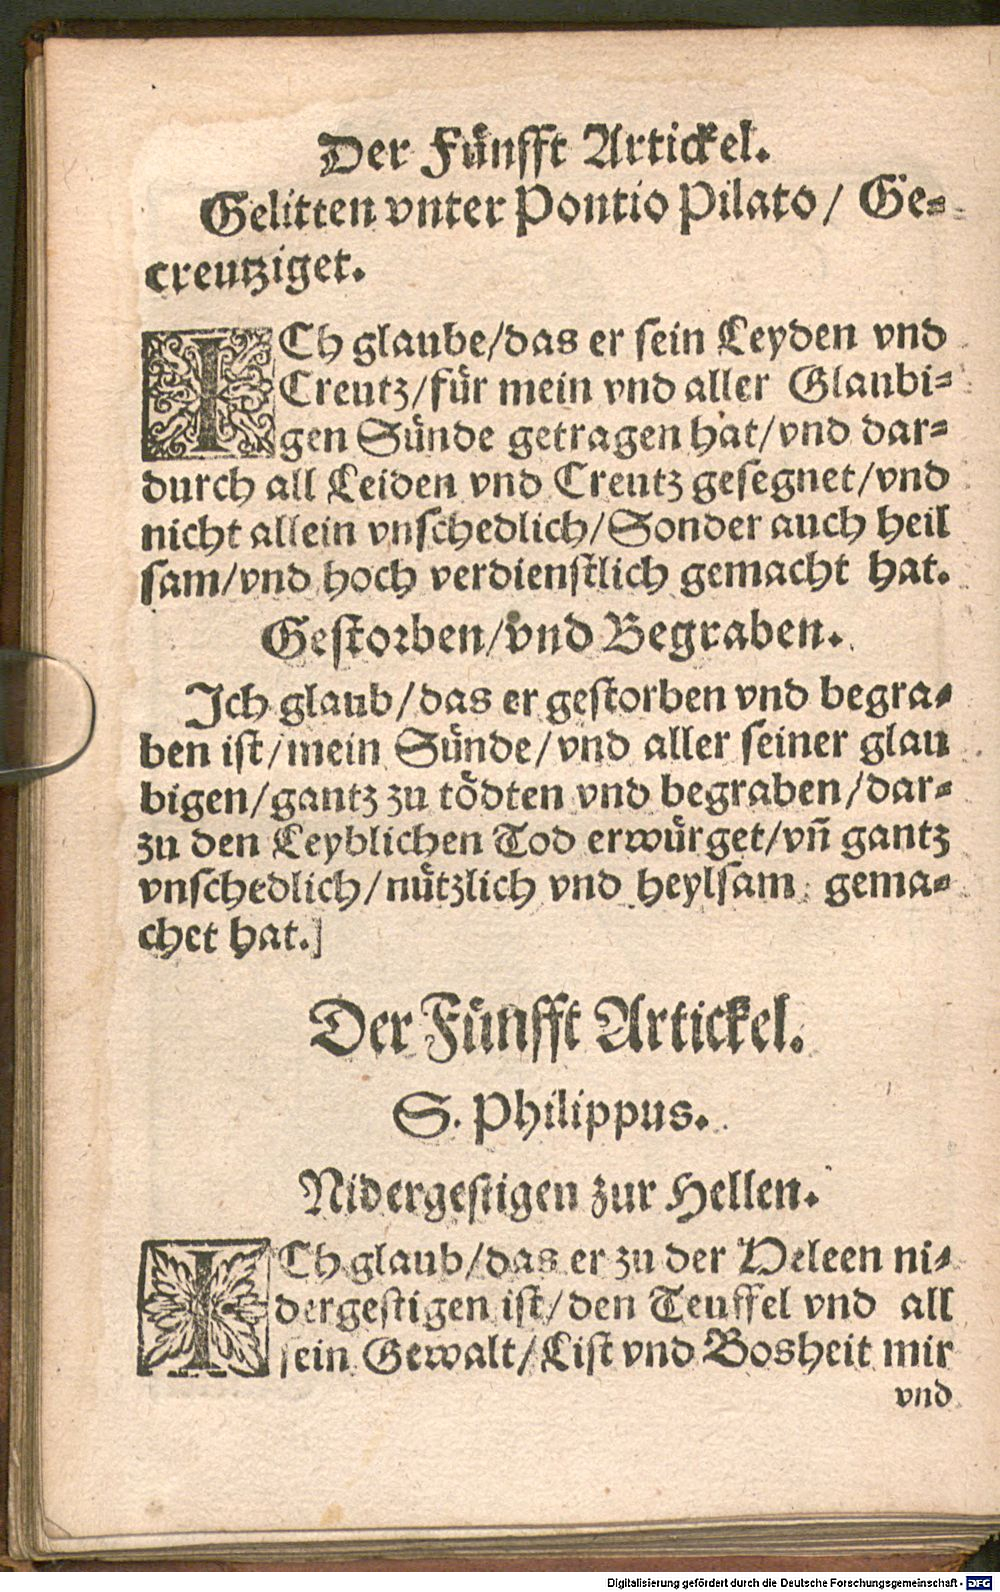 Der Fünfft Artickel.
Gelitten vnter Pontio Pilato / Ge-
creutziget.
ICh glaube/das er sein Leyden vnd
Creutz/für mein vnd aller Glaubi-
gen Sünde getragen hat/vnd dar-
durch all Leiden vnd Creutz gesegnet/vnd
nicht allein vnschedlich/Sonder auch heil
sam/vnd hoch verdienstlich gemacht hat.
Gestorben/vnd Begraben.
Ich glaub/das er gestorben vnd begra-
ben ist/mein Sünde/vnd aller seiner glau
bigen/gantz zu tödten vnd begraben/dar-
zu den Leyblichen Tod erwürget/vñ gantz
vnschedlich/nützlich vnd heylsam gema-
chet hat.]
Der Fünfft Artickel.
S. Philippus.
Nidergestigen zur Hellen.
ICh glaub/das er zu der Heleen ni-
dergestigen ist/den Teuffel vnd all
sein Gewalt/List vnd Bosheit mir
vnd
Digitalisierung gefördert durch die Deutsche Forschungsgemeinschaft - DFG